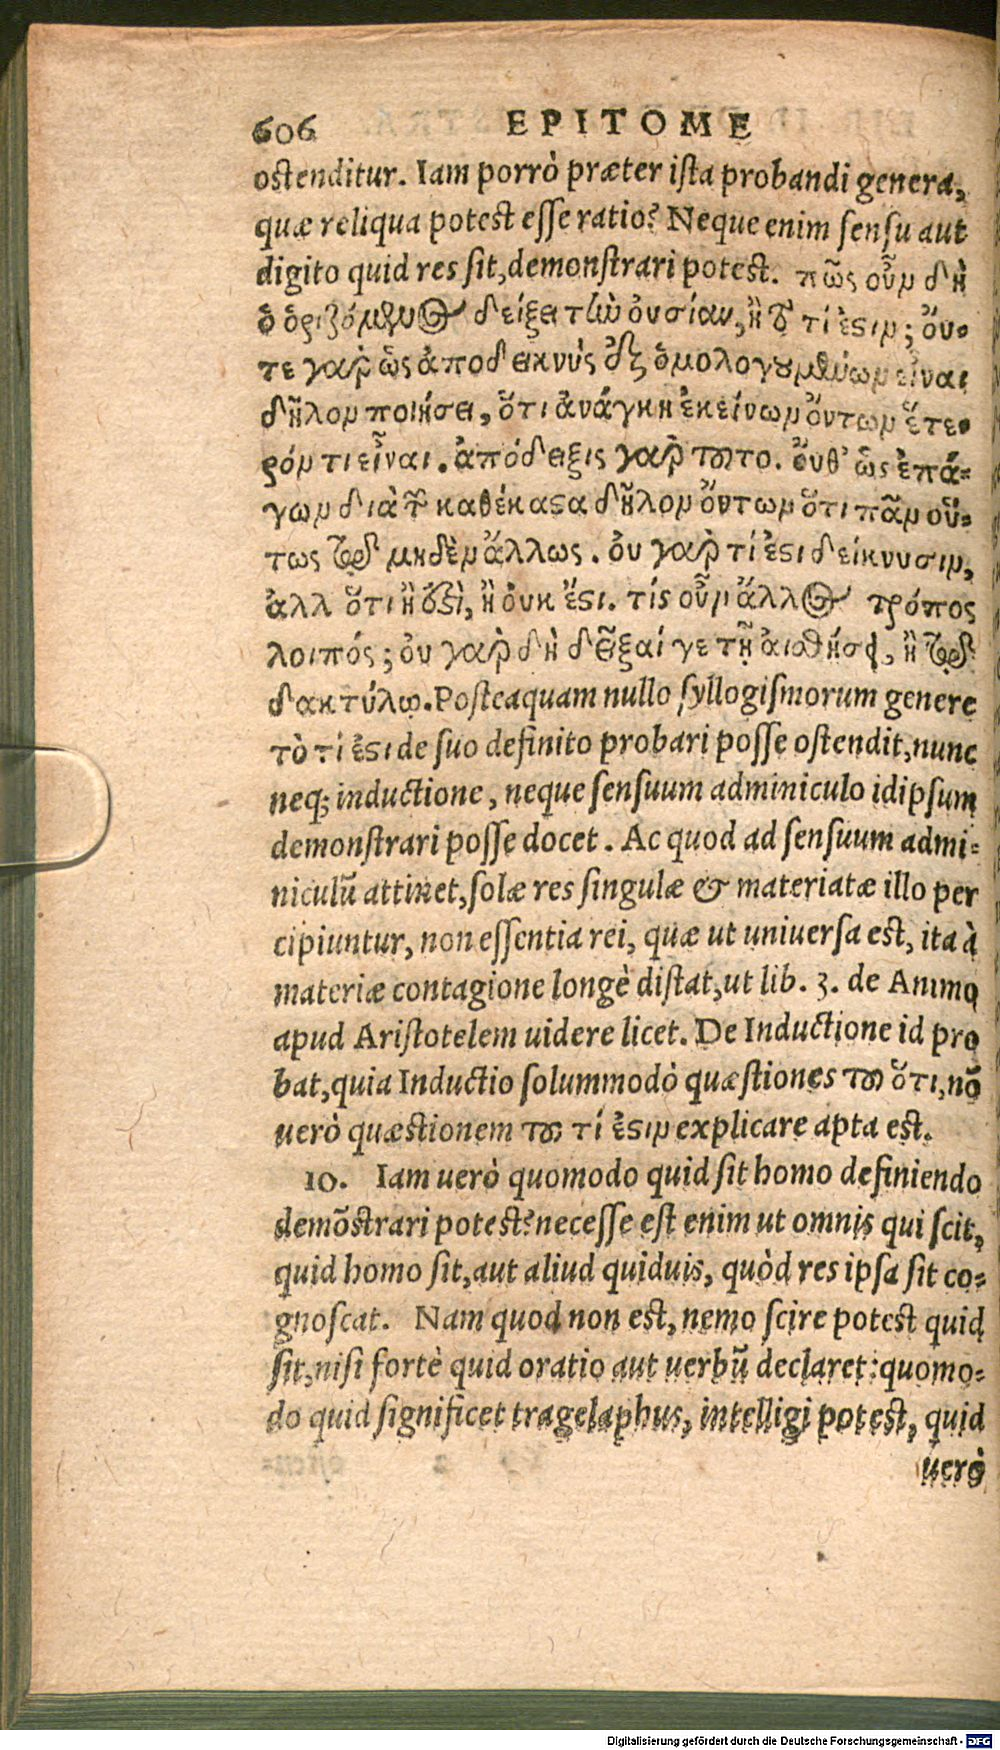 606 EPITOME
ostenditur. Iam porrò præter ista probandi genera,
quæ reliqua potest esse ratio? Neque enim sensu aut
digito quid res sit, demonstrari potest. πῶς οὖν δὴ
ὁ ὁριζόμενος δείξει τὴν οὐσίαν, ἢ τὸ τί ἐστιν; οὔ-
τε γὰρ ὡς ἀποδεικνὺς ἐξ ὁμολογουμένων εἶναι
δῆλον ποιήσει, ὅτι ἀνάγκη ἐκείνων ὄντων ἕτε-
ρόν τι εἶναι. ἀπόδειξις γὰρ τοῦτο. οὔθ' ὡς ἐπά-
γων διὰ τῶν καθέκαστα δῆλον ὄντων ὅτι πᾶν οὕ-
τως τῷ μηδὲν ἄλλως. οὐ γὰρ τί ἐστι δείκνυσιν,
ἀλλ ὅτι ἢ ἐστὶ, ἢ οὐκ ἔστι. τίς οὖν ἄλλος τρόπος
λοιπός; οὐ γὰρ δὴ δεῖξαί γε τῇ αἰσθήσει, ἢ τῷ
δακτύλῳ. Posteaquam nullo syllogismorum genere
τὸ τί ἐστι de suo definito probari posse ostendit, nunc
neq; inductione, neque sensuum adminiculo idipsum
demonstrari posse docet. Ac quod ad sensuum admi-
niculū attinet, solæ res singulæ & materiatæ illo per
cipiuntur, non essentia rei, quæ ut uniuersa est, ita à
materiæ contagione longè distat, ut lib. 3. de Animo
apud Aristotelem uidere licet. De Inductione id pro
bat, quia Inductio solummodò quæstiones τοῦ ὅτι, nō
uerò quæstionem τοῦ τί ἐστιν explicare apta est.
10. Iam uerò quomodo quid sit homo definiendo
demōstrari potest? necesse est enim ut omnis qui scit,
quid homo sit, aut aliud quiduis, quòd res ipsa sit co-
gnoscat. Nam quod non est, nemo scire potest quid
sit, nisi fortè quid oratio aut uerbū declaret: quomo-
do quid significet tragelaphus, intelligi potest, quid
uerò
Digitalisierung gefördert durch die Deutsche Forschungsgemeinschaft - DFG